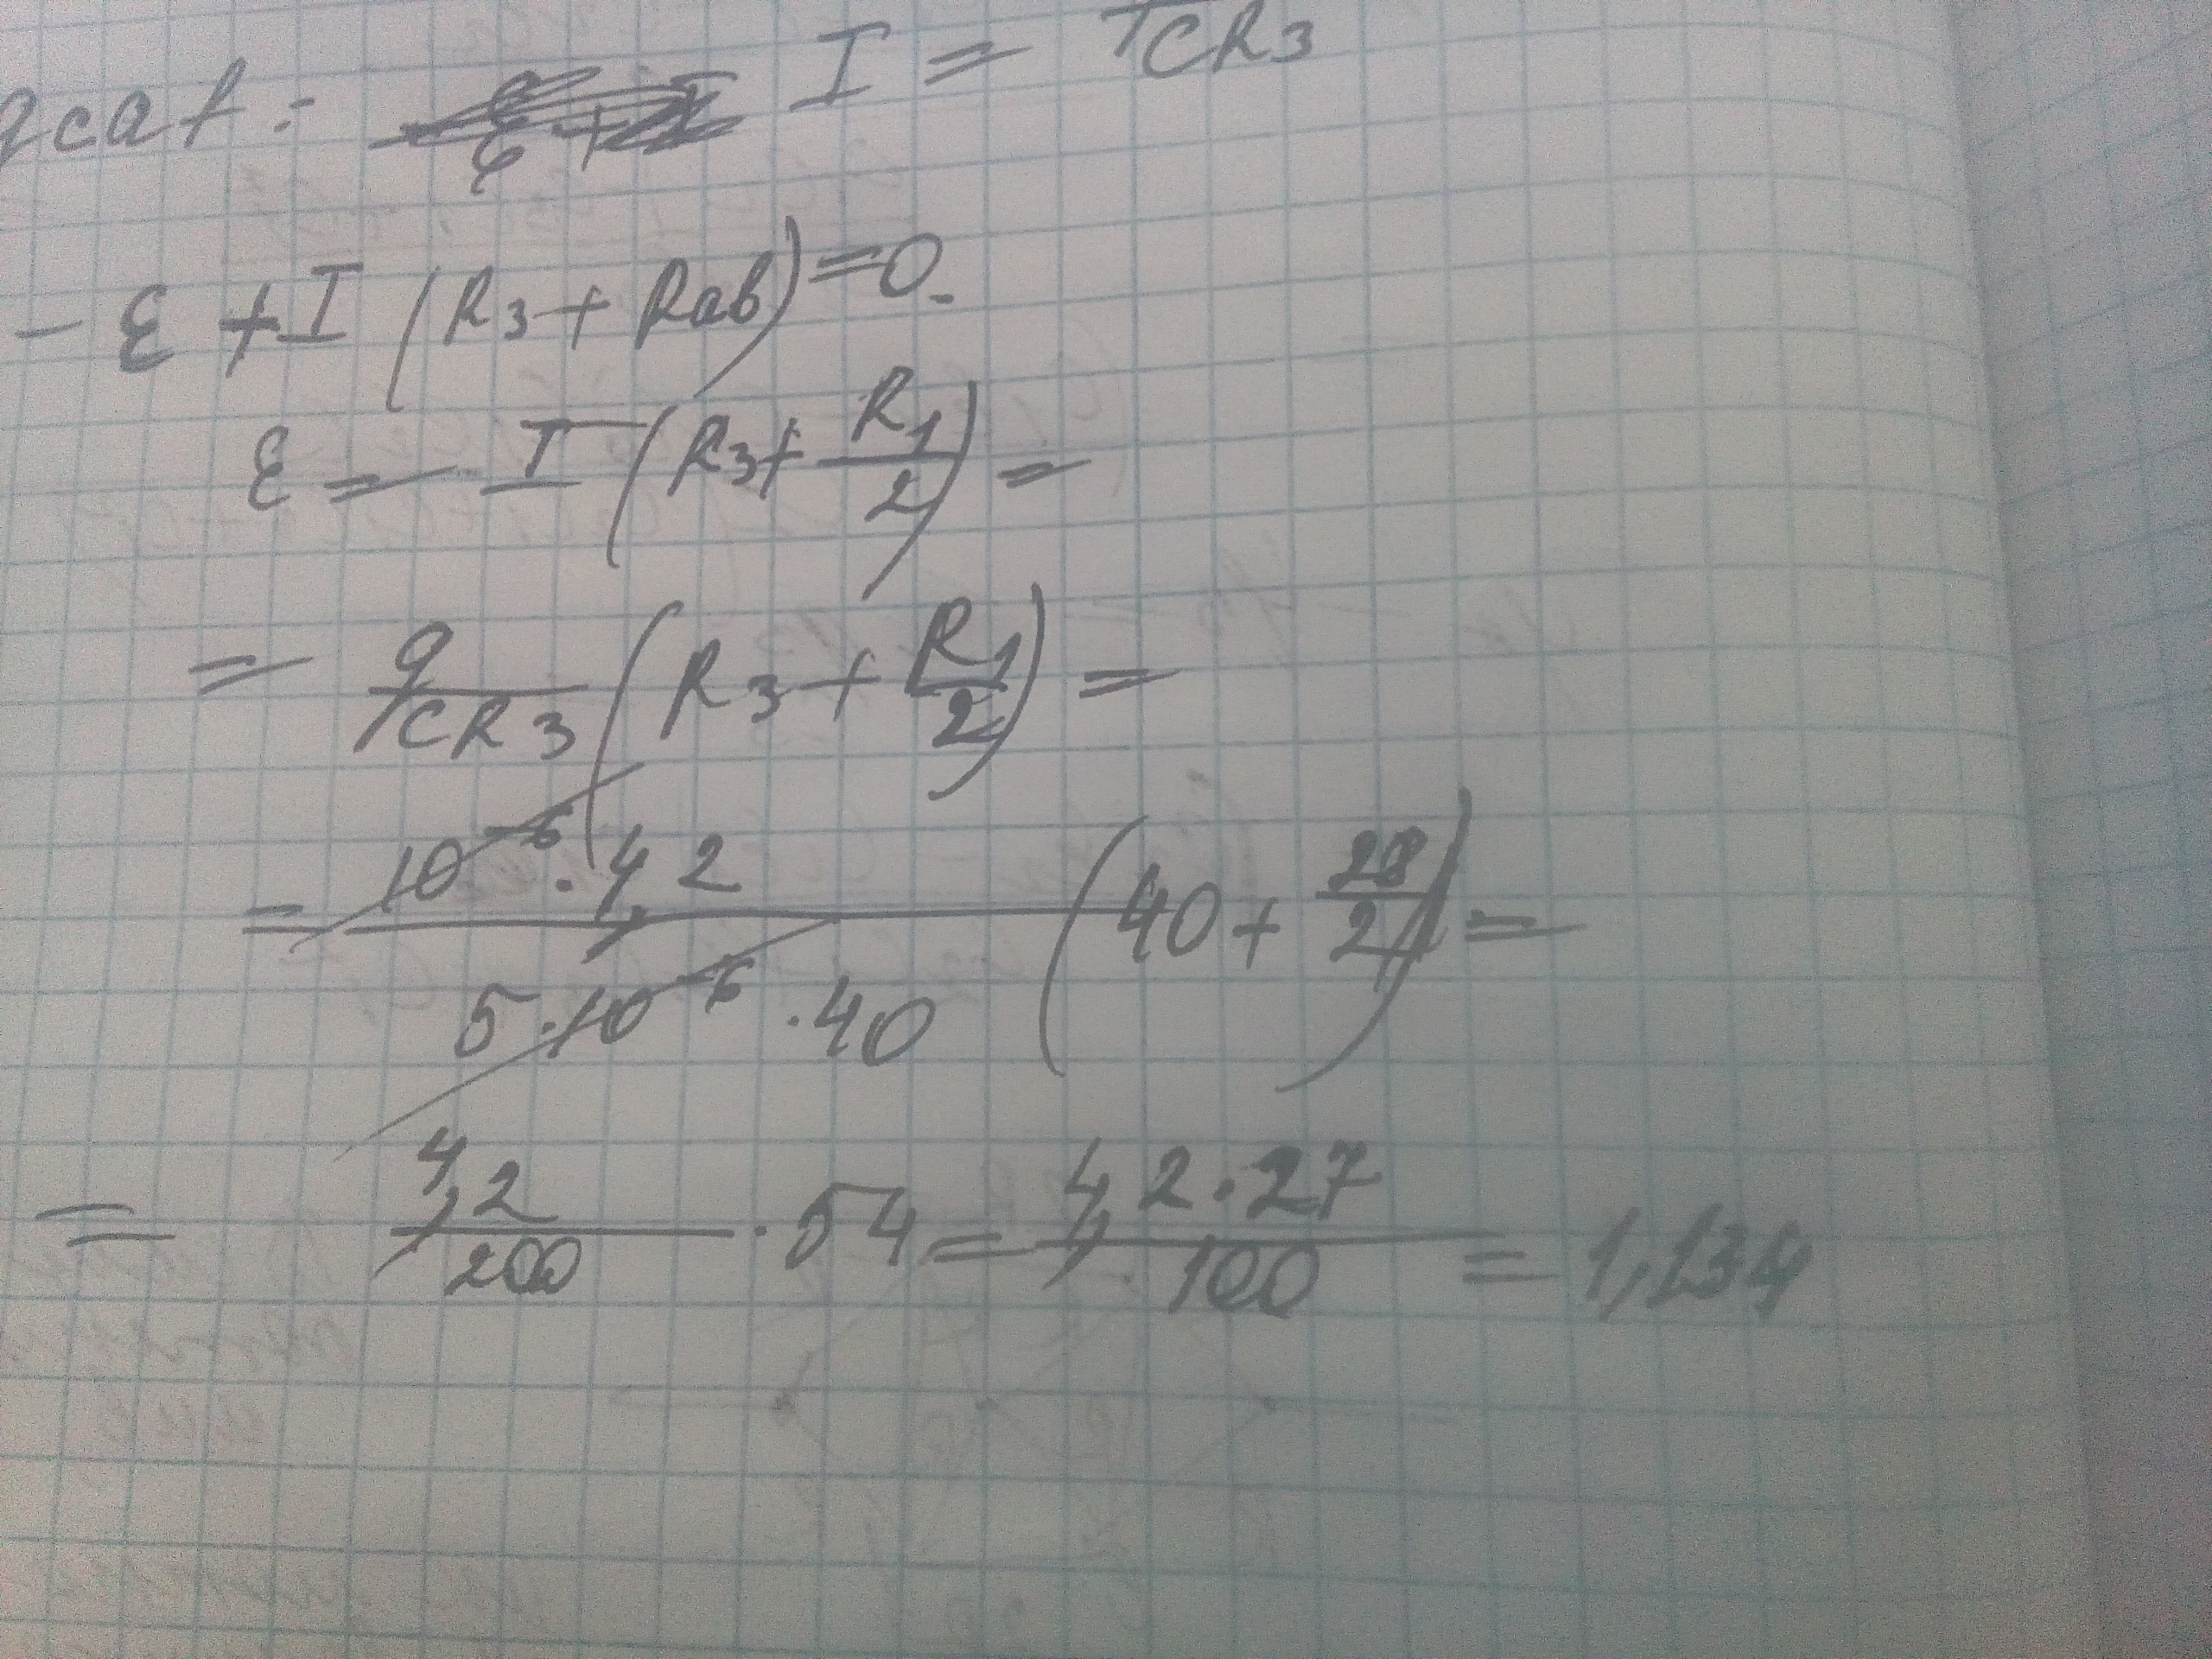 qcaf: I = CR3
- ε + I (R3 + Rab) = 0.
ε = I (R3 + R1/2) =
= q/CR3 (R3 + R1/2) =
= 10^-6 · 4,2 / 5 · 10^-6 · 40 (40 + 28/2) =
= 4,2/200 · 54 = 4,2 · 27/100 = 1,134